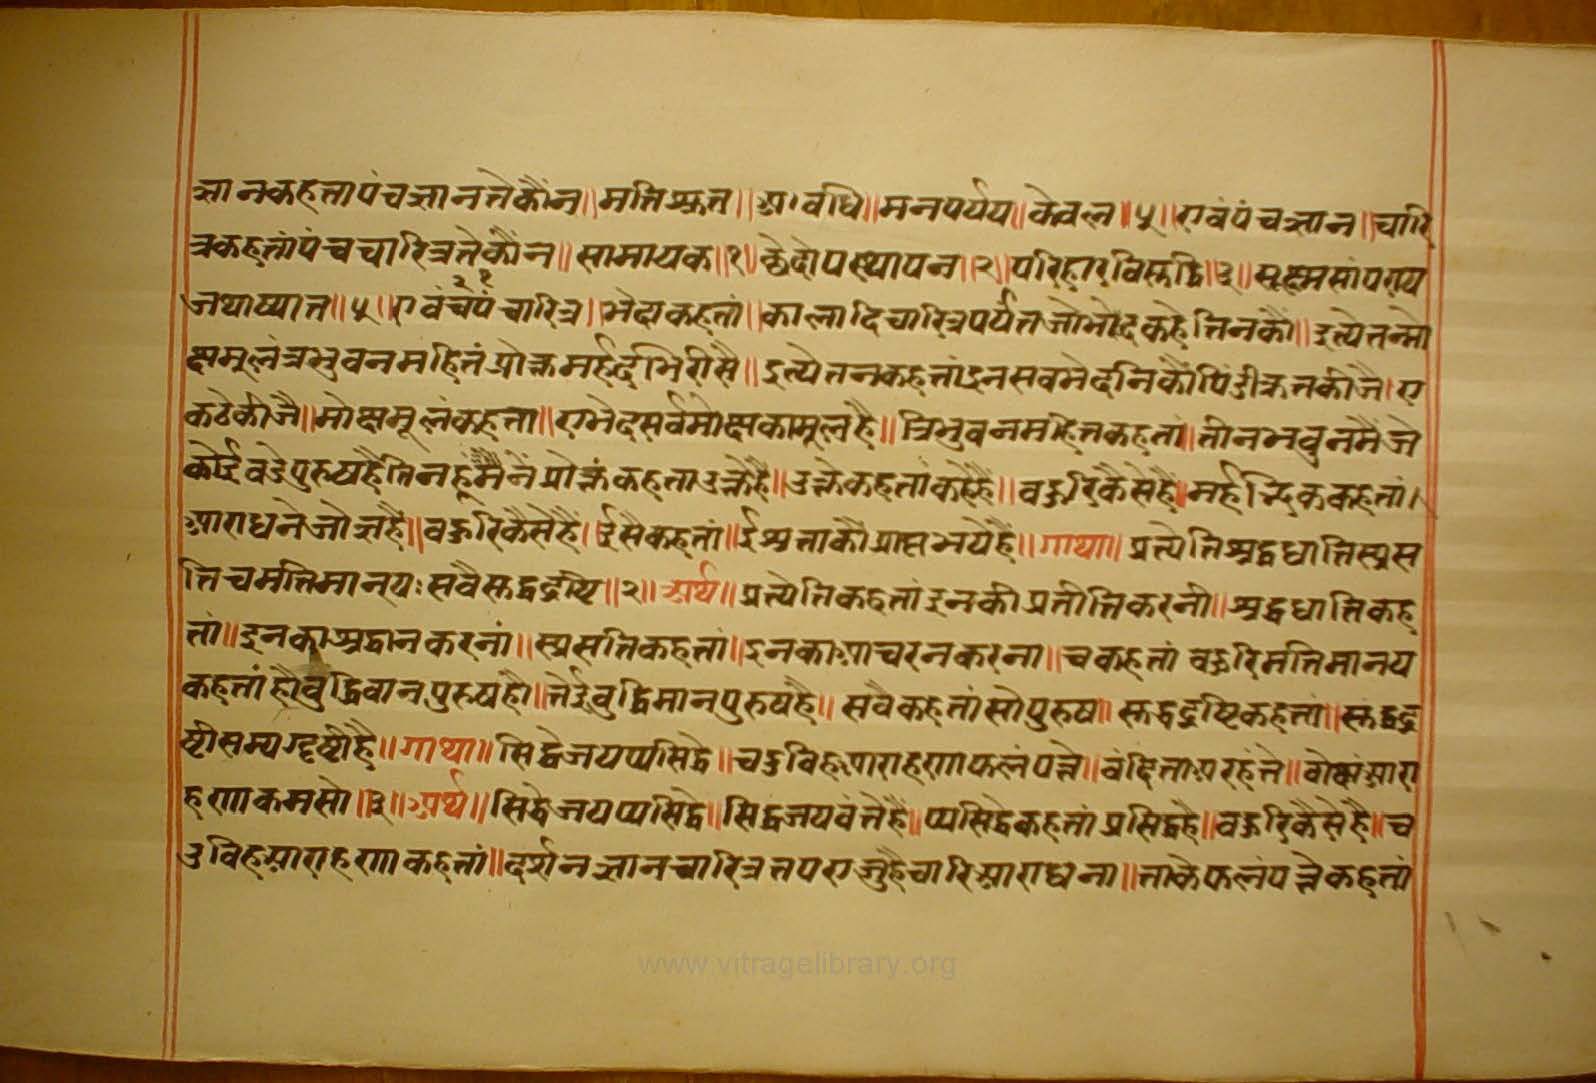 ज्ञानकहतापंचज्ञानतेकौंन॥मतिश्रुत॥अवधि॥मनपर्यय॥केवल॥५॥एवंपंचज्ञान॥चारि
त्रकहतांपंचचारित्रतेकौंन॥सामायक॥१॥छेदोपस्थापन॥२॥परिहारविसुद्धि॥३॥सूक्ष्मसांपराय
जथाष्यात॥५॥एवंचपंचारित्र॥भेदाकहतां॥कालादिचारित्रपर्यंतजोभेदकहेतिनकौं॥इत्येतन्मो
क्षमूलंत्रभुवनमहितंप्रोक्तमर्हद्भिरीसै॥इत्येतनकहतांइनसवभेदनिकौंपिंडीक्रतकीजै।ए
कठेकीजै॥मोक्षमूलंकहता॥एभेदसर्वमोक्षकामूलहै॥त्रिभुवनमहितकहतां॥तीनभवुनमैंजे
कोईवडेपुरुषहैतिनहूंमैंनेंप्रोक्तंकहताउक्तेहै॥उक्तेकहतांकहेहैं॥वहुरिकैसेहैं॥मर्हद्भिककहतां।
आराधनेजोज्ञहै॥वहुरिकैसेहैं।ईसैकहतां॥ईश्वताकौप्राप्तभयेहैं॥गाथा॥प्रत्येतिश्रद्दधातिस्प्रस
तिचमतिमान्यःसवैसुद्धद्रष्टि॥२॥अर्थ॥प्रत्येतिकहतांइनकीप्रतीतिकरनी॥श्रद्दधातिकह
तां॥इनकाश्रद्धानकरनां॥स्प्रसतिकहतां॥इनकाआचरनकरना॥चकहतां वहुरिमतिमानय
कहतांहौवुद्धिवानपुरुषहौ॥तेईवुद्धिमानपुरुषहै॥सवैकहतांसोपुरुष॥सुद्धद्रष्टिकहतां॥सुद्धद्र
ष्टीसम्यग्दृष्टीहै॥गाथा॥सिद्धेजयप्पसिद्धे॥चउविहआराहणाफलंपत्ते॥वंदित्ताअरहंते॥वोछंआरा
हणाकमसो॥३॥अर्थ॥सिद्धेजयप्पसिद्धे॥सिद्धजयवंतेहैं॥प्पसिद्धेकहतांप्रसिद्धहै॥वहुरिकैसेहै॥च
उविहआराहणाकहतां॥दर्शनज्ञानचारित्रतपएजुहैचारिआराधना॥ताकेफलंपत्तेकहतां
www.vitragelibrary.org